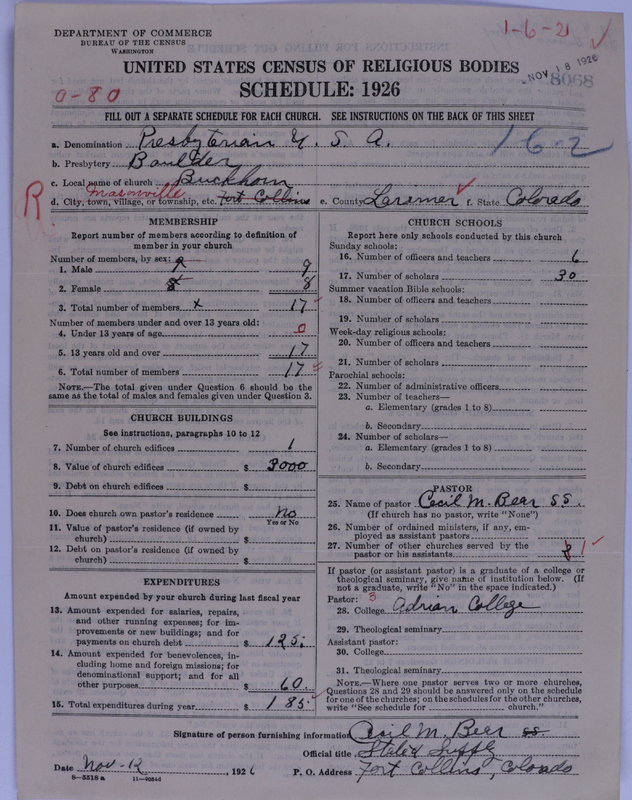 DEPARTMENT OF COMMERCE
BUREAU OF THE CENSUS
WASHINGTON
1-6-21
UNITED STATES CENSUS OF RELIGIOUS BODIES
NOV 18 1926
SCHEDULE: 1926
0-80
FILL OUT A SEPARATE SCHEDULE FOR EACH CHURCH. SEE INSTRUCTIONS ON THE BACK OF THIS SHEET
a. Denomination Presbyterian U. S. A. 162
b. Presbytery Boulder
c. Local name of church Buckhorn
R Masonville
d. City, town, village, or township, etc. Fort Collins e. County Larimer f. State Colorado
MEMBERSHIP
Report number of members according to definition of
member in your church
Number of members, by sex:
1. Male 9 9
2. Female 8 8
3. Total number of members x 17
Number of members under and over 13 years old:
4. Under 13 years of age 0
5. 13 years old and over 17
6. Total number of members 17
NOTE.—The total given under Question 6 should be
same as the total of males and females given under Question 3.
CHURCH BUILDINGS
See instructions, paragraphs 10 to 12
7. Number of church edifices 1
8. Value of church edifices $ 3000
9. Debt on church edifices $
10. Does church own pastor's residence No
Yes or No
11. Value of pastor's residence (if owned by
church) $
12. Debt on pastor's residence (if owned by
church) $
EXPENDITURES
Amount expended by your church during last fiscal year
13. Amount expended for salaries, repairs,
and other running expenses; for im-
provements or new buildings; and for
payments on church debt $ 125.
14. Amount expended for benevolences, in-
cluding home and foreign missions; for
denominational support; and for all
other purposes $ 60.
15. Total expenditures during year $ 185.
CHURCH SCHOOLS
Report here only schools conducted by this church
Sunday schools:
16. Number of officers and teachers 6
17. Number of scholars 30
Summer vacation Bible schools:
18. Number of officers and teachers
19. Number of scholars
Week-day religious schools:
20. Number of officers and teachers
21. Number of scholars
Parochial schools:
22. Number of administrative officers
23. Number of teachers—
a. Elementary (grades 1 to 8)
b. Secondary
24. Number of scholars—
a. Elementary (grades 1 to 8)
b. Secondary
PASTOR
25. Name of pastor Cecil M. Bear SS.
(If church has no pastor, write "None")
26. Number of ordained ministers, if any, em-
ployed as assistant pastors
27. Number of other churches served by the
pastor or his assistants 1
If pastor (or assistant pastor) is a graduate of a college or
theological seminary, give name of institution below. (If
not a graduate, write "No" in the space indicated.)
Pastor: 3
28. College Adrian College
29. Theological seminary
Assistant pastor:
30. College
31. Theological seminary
NOTE.—Where one pastor serves two or more churches,
Questions 28 and 29 should be answered only on the schedule
for one of the churches; on the schedules for the other churches,
write "See schedule for church."
Signature of person furnishing information Cecil M. Bear SS
Official title Stated Supply
Date Nov-12, 1926 P. O. Address Fort Collins, Colorado
8-5518 a